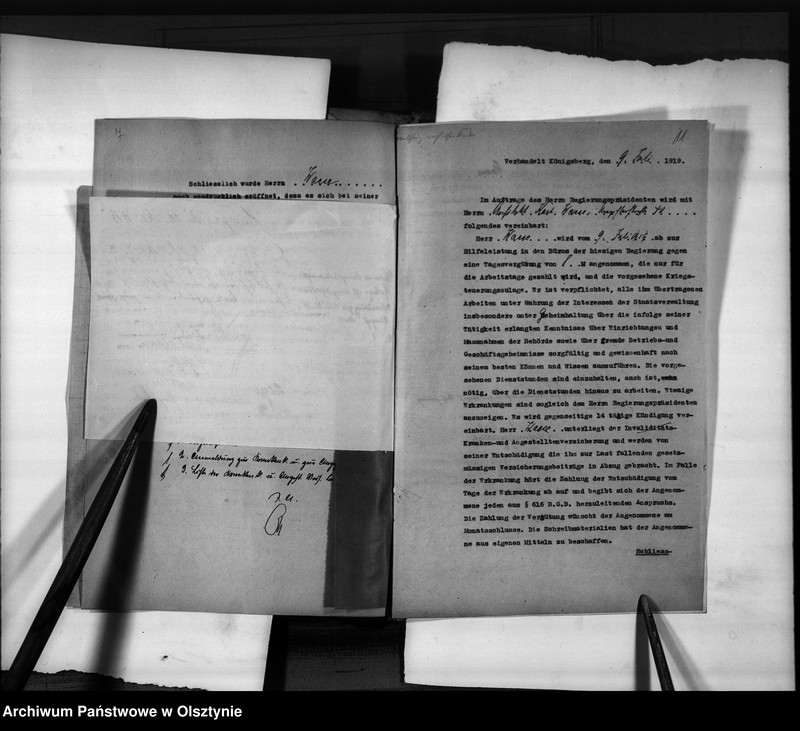 Schliesslich wurde Herrn . Hans. . . . . .
noch ausdrücklich eröffnet, dass es sich bei seiner
2. Anmeldung zur Krankenk. u. zur
3. Liste der Krankenk. u. Angest.
11
Verhandelt Königsberg, den 9. Juli. 1919.
Im Auftrage des Herrn Regierungspräsidenten wird mit
Herrn
folgendes vereinbart:
Herr . . . . wird vom 9. Juli ab zur
Hilfeleistung in den Büros der hiesigen Regierung gegen
eine Tagesvergütung von 8. .M angenommen, die nur für
die Arbeitstage gezahlt wird, und die vorgesehene Kriegs-
teuerungszulage. Er ist verpflichtet, alle ihm übertragenen
Arbeiten unter Wahrung der Interessen der Staatsverwaltung
insbesondere unter Geheimhaltung über die infolge seiner
Tätigkeit erlangten Kenntnisse über Einrichtungen und
Massnahmen der Behörde sowie über fremde Betriebs-und
Geschäftsgeheimnisse sorgfältig und gewissenhaft nach
seinen besten Können und Wissen auszuführen. Die vorge-
sehenen Dienststunden sind einzuhalten, auch ist, wenn
nötig, über die Dienststunden hinaus zu arbeiten. Etwaige
Erkrankungen sind sogleich dem Herrn Regierungspräsidenten
anzuzeigen. Es wird gegenseitige 14 tägige Kündigung ver-
einbart. Herr . unterliegt der Invaliditäts-
Kranken-und Angestelltenversicherung und werden von
seiner Entschädigung die ihm zur Last fallenden gesetz-
mässigen Versicherungsbeiträge in Abzug gebracht. Im Falle
der Erkrankung hört die Zahlung der Entschädigung vom
Tage der Erkrankung ab auf und begibt sich der Angenom-
mene jeden aus § 616 B.G.B. herzuleitenden Anspruchs.
Die Zahlung der Vergütung wünscht der Angenommene am
Monatsschlusse. Die Schreibmaterialien hat der Angenomme-
ne aus eigenen Mitteln zu beschaffen.
Schliess-
Archiwum Państwowe w Olsztynie